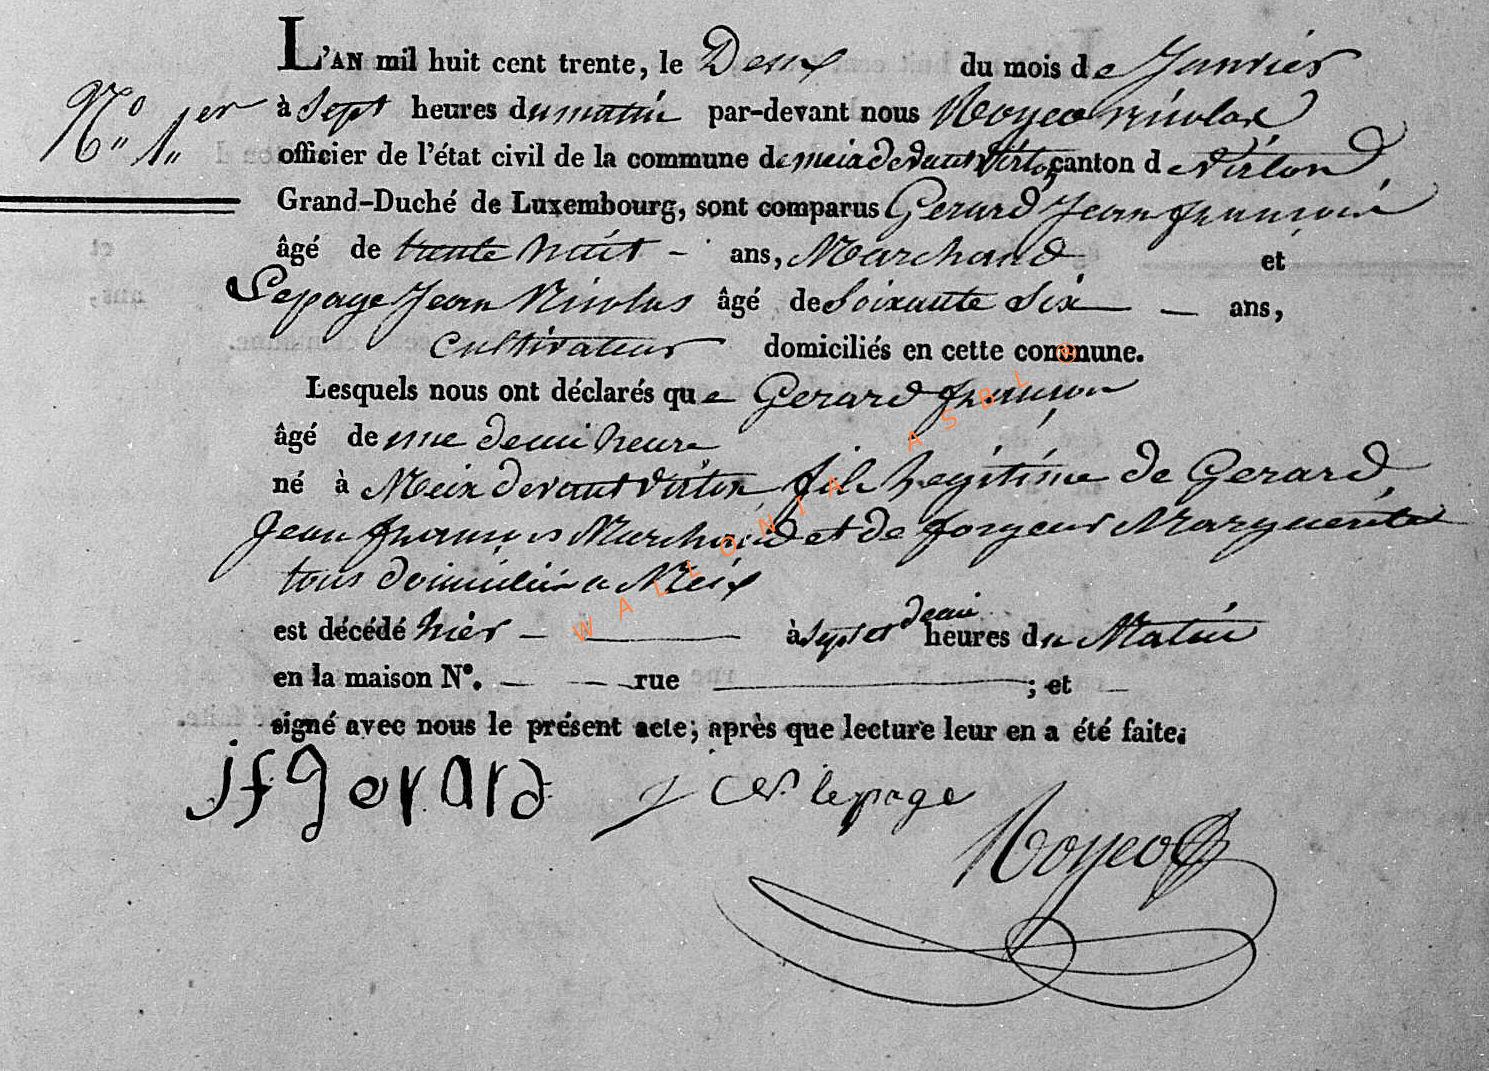 L'AN mil huit cent trente, le Deux du mois de Janvier
N° 1er
à Sept heures du matin par-devant nous Noyea nicolas
officier de l'état civil de la commune de meix devant virton canton de Virton
Grand-Duché de Luxembourg, sont comparus Gerard Jean françois
âgé de trente huit ans, Marchand et
Lepage Jean Nicolas âgé de Soixante Six ans,
cultivateur domiciliés en cette commune.
Lesquels nous ont déclarés que Gerard françois
âgé de une demi heure
né à Meix devant virton fils Legitime de Gerard
Jean françois Marchand et de Marguerite
tous domicilié a Meix
est décédé hier à Sept et demi heures du Matin
en la maison N°. rue ; et
signé avec nous le présent acte; après que lecture leur en a été faite.
jf gerard lepage
WALLONIA ASBL ®